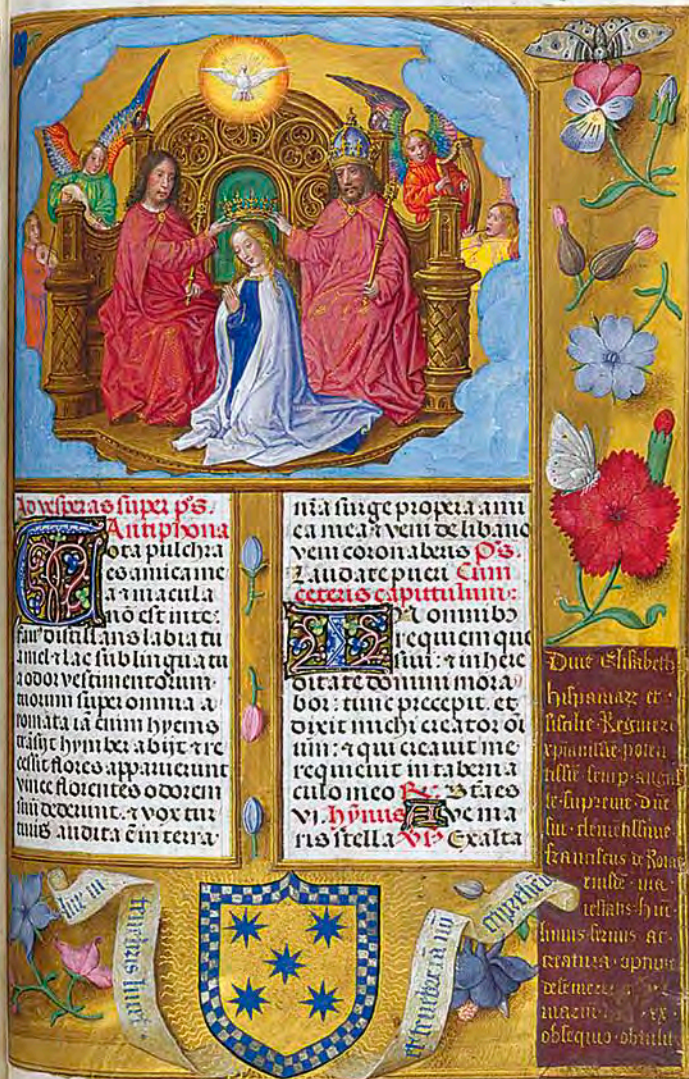 Ad vesperas super ps.
Antiphona
Tota pulchra
es amica me
a ⁊ macula
nō est in te:
fau⁹ distillans labia tu
a mel ⁊ lac sub lingua tu
a odor vestimentorum
tuorum super omnia a
romata iā enim hyems
trāsijt hymber abijt ⁊ re
cessit flores apparuerunt
vinee florentes odorem
sui dederunt. ⁊ vox tur
turis audita ē in terra
nr̄a surge propera ami
ca mea ⁊ veni de libano
veni coronaberis Ps.
Laudate pueri Cum
ceteris capittulum:
In omnibꝫ
requiem que
siui: ⁊ in here
ditate domini mora
bor: tunc precepit. et
dixit michi creator oī
um: ⁊ qui creauit me
requieuit in taberna
culo meo
vi. hÿnus Aue ma
ris stella Exalta
Diue Elisabeth
hispaniarꝫ et
sicilie Regine
xpianissīe poten
tissīe semp auguste
supreme Dn̄e
sue clemētissime
franciscus de Roias
eiusdē ma
iestatis hūi
limus seruus ac
creatura optime
ex
obsequio obtulit
lux in
tenebris lucet
et tenebre eā nō
cōprehēderūt